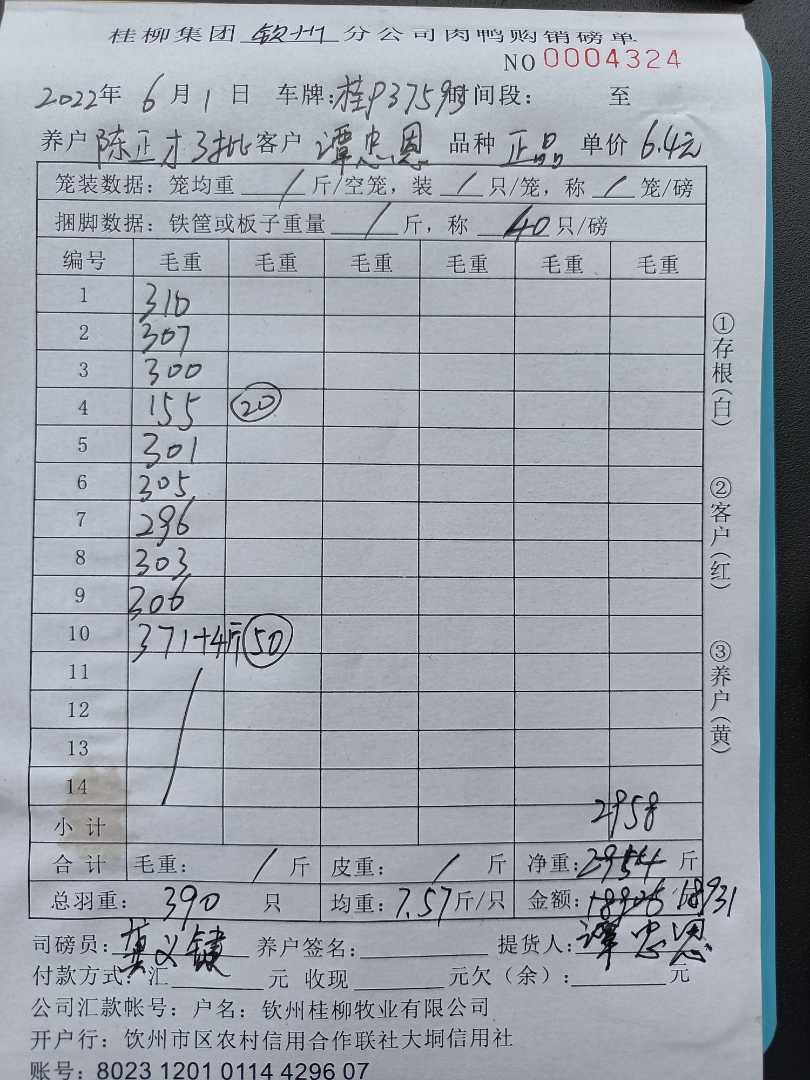 桂柳集团 钦州 分公司肉鸭购销磅单
NO 0004324
2022年 6月1日 车牌:桂P37593 时间段: 至
养户 陈正才3批 客户 谭忠恩 品种 正品 单价 6.4元
笼装数据: 笼均重 / 斤/空笼, 装 / 只/笼, 称 / 笼/磅
捆脚数据: 铁筐或板子重量 / 斤, 称 40 只/磅
编号 毛重 毛重 毛重 毛重 毛重 毛重
1 310
2 307
3 300
4 155 20
5 301
6 305
7 296
8 303
9 306
10 371+4斤 50
11
12
13
14
小计 2958
合计 毛重: / 斤 皮重: / 斤 净重: 2954 斤
总羽重: 390 只 均重: 7.57斤/只 金额: 18906 18931
司磅员: 义 养户签名: 提货人: 谭忠恩
付款方式: 汇 元 收现 元欠(余): 元
公司汇款帐号: 户名: 钦州桂柳牧业有限公司
开户行: 钦州市区农村信用合作联社大垌信用社
账号: 8023 1201 0114 4296 07
①存根(白)
②客户(红)
③养户(黄)